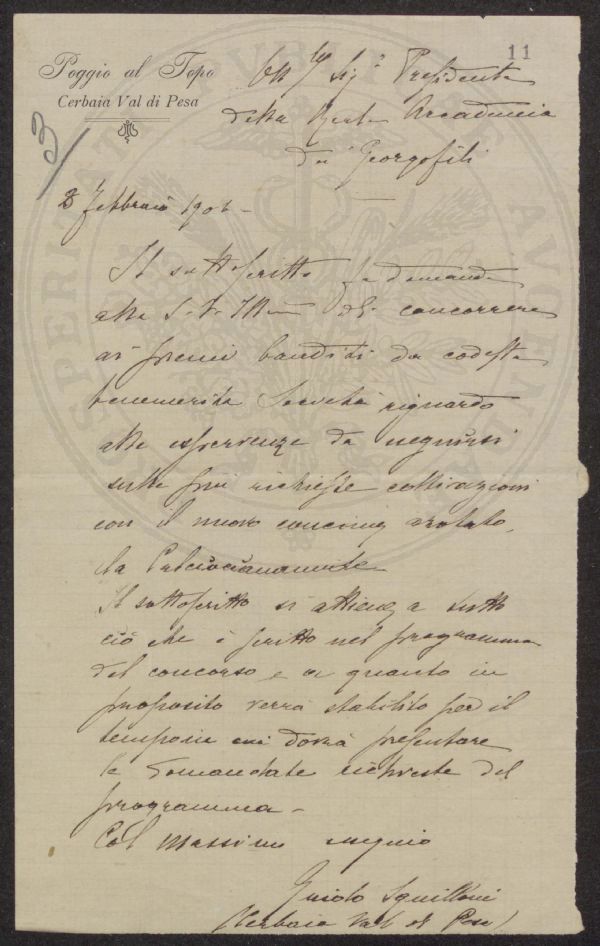 11
Poggio al Topo
Cerbaia Val di Pesa
3/
Ill Sig Presidente
della Reale Accademia
dei Georgofili
Febbraio 190
Il sottoscritto fa domanda
alla S. V. Ill di concorrere
ai premi banditi da codesta
benemerita Società riguardo
alle esperienze da eseguirsi
sulle più richieste coltivazioni
con il nuovo concime azotato,
la Calciocianamide
Il sottoscritto si attiene a tutto
ciò che è scritto nel programma
del concorso e a quanto in
proposito verrà stabilito per il
tempo in cui dovrà presentare
le richieste del
programma -
Col massimo ossequio
Guido Squilloni
(Cerbaia Val di Pesa)